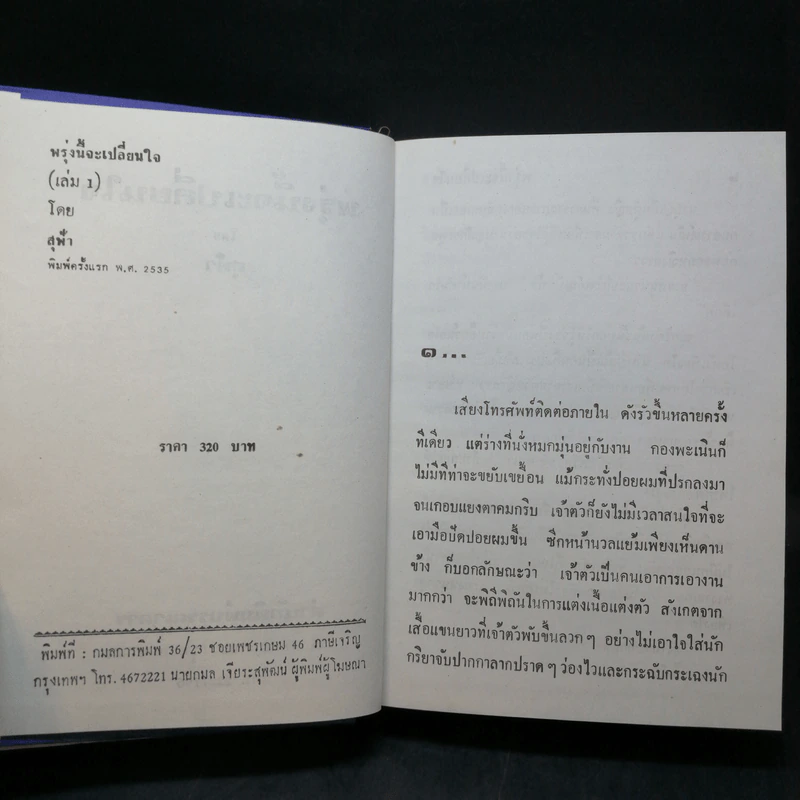 พรุ่งนี้จะเปลี่ยนใจ
(เล่ม 1)
โดย
สุฟ้า
พิมพ์ครั้งแรก พ.ศ. 2535
ราคา 320 บาท
พิมพ์ที่ : กมลการพิมพ์ 36/23 ซอยเพชรเกษม 46 ภาษีเจริญ
กรุงเทพฯ โทร. 4672221 นายกมล เจียระสุพัฒน์ ผู้พิมพ์ผู้โฆษณา
๑...
เสียงโทรศัพท์ติดต่อภายใน ดังรัวขึ้นหลายครั้ง
ทีเดียว แต่ร่างที่นั่งหมกมุ่นอยู่กับงาน กองพะเนินก็
ไม่มีทีท่าจะขยับเขยื้อน แม้กระทั่งปอยผมที่ปรกลงมา
จนเกือบแยงตาคมกริบ เจ้าตัวก็ยังไม่มีเวลาสนใจที่จะ
เอามือปัดปอยผมขึ้น ซีกหน้านวลแย้มเพียงเห็นด้าน
ข้าง ก็บอกลักษณะว่า เจ้าตัวเป็นคนเอาการเอางาน
มากกว่า จะพิถีพิถันในการแต่งเนื้อแต่งตัว สังเกตจาก
เสื้อแขนยาวที่เจ้าตัวพับขึ้นลวก ๆ อย่างไม่เอาใจใส่นัก
กริยาจับปากกาลากปราด ๆ ว่องไวและกระฉับกระเฉงนัก